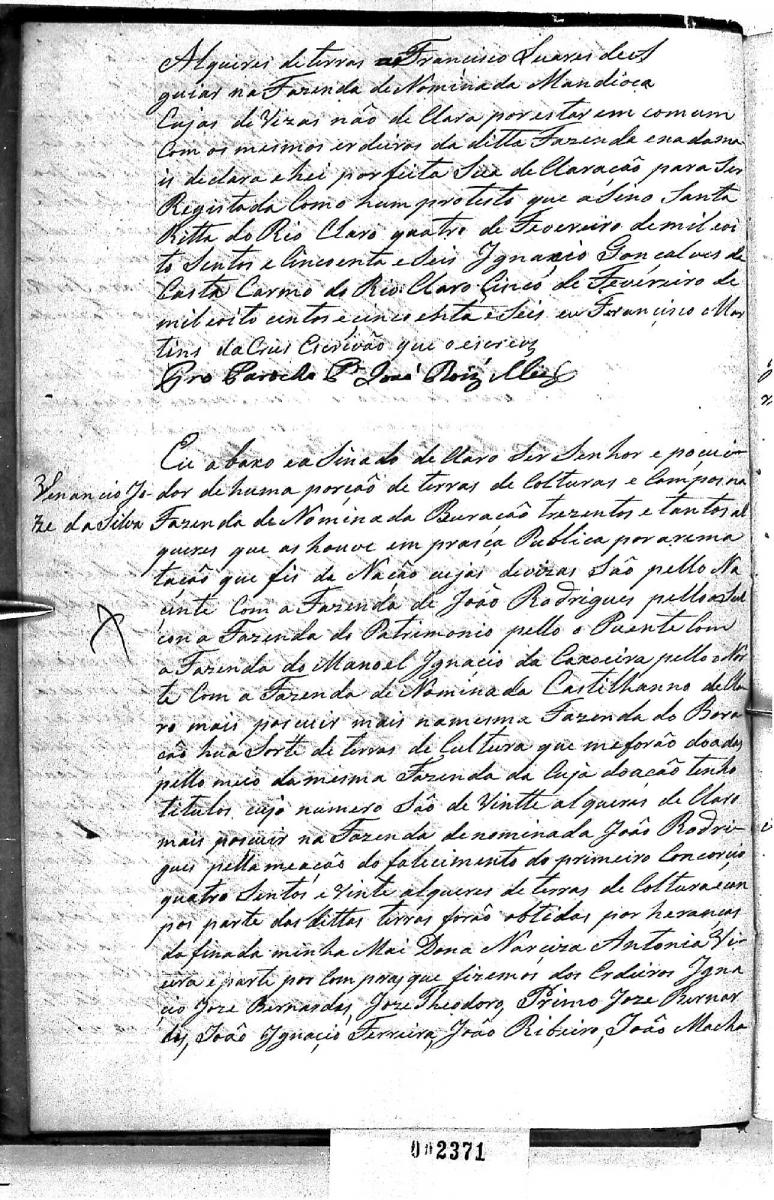 Alqueres de terras a Francisco Suares de A
guiar na Fazenda de Nominada Mandioca
Cujas de Vizas não de Clara por estar em comum
Com os mesmos erdeiros da ditta Fazenda e nada ma
is declara e hei por feita Sua de Claração para Ser
Registada Como hum protesto que a Sino Santa
Ritta do Rio Claro quatro de Fevereiro de mil oi
to Sentos e Cincoenta e Seis Ignacio Gonçalves de
Casta Carmo do Rio Claro Cinco de Fevereiro de
mil oito centos e cinco enta e Seis eu Francisco Mar
tins da Crus Escrivão que o escrevy
Pro Parocho Pe José Roiz
Eu abaxo e a Sinado de Claro Ser Senhor e pocui
Venancio Jo- dor de huma porção de terras de Colturas e Campos na
ze da Silva Fazenda de Nominada Buracão trezentos e tantos al
queres que as houve em prasça Publica por arema
tação que fis da Nação cujas devizas São pello Na
cente Com a Fazenda de João Rodrigues pello o Sul
con a Fazenda do Patrimonio pello o Puente Com
a Fazenda do Manoel Ignacio da Caxoeira pello o Nor
te Com a Fazenda de Nominada Castilhanno de Cla
ro mais pocuir mais na mesma Fazenda do Bora
cão hua Sorte de terras de Cultura que me forão doadas
pello meio da mesma Fazenda da Cuja doacão tenho
titulos cujo numero São de Vintte alqueres de Claro
mais pocuir na Fazenda denominada João Rodri-
gues pella meacão do falecimento do primeiro Concorçio
quatro Sentos e Vinte alqueres de terras de Coltura e can
pos parte das dittas terras forão obtidas por heranças
da finada minha Mai Dona Narciza Antonia Vi-
eira e parte por Compras que fizemos dos Erdeiros Igna
cio Joze Bernardes, Joze Theodoro, Primo Joze Bernar
des, João Ignacio Ferreira, João Ribeiro, João Macha
002371